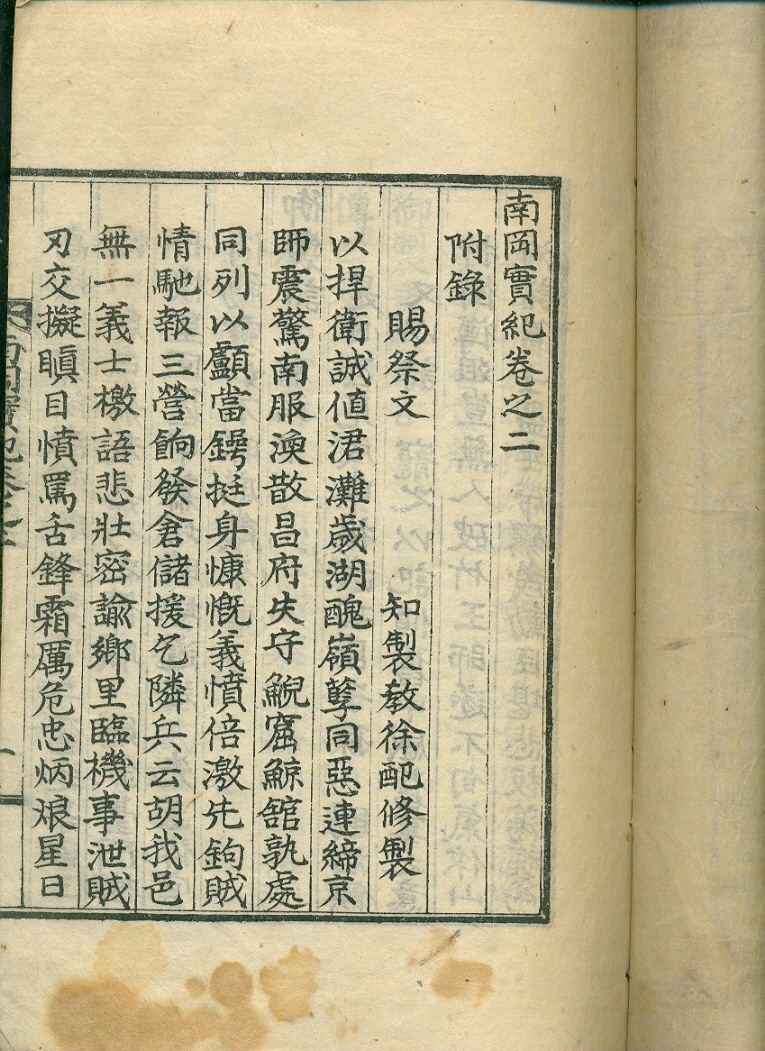 南岡實紀卷之二
附錄
賜祭文 知製敎徐配修製
以捍衛誠値涒灘歲湖醜嶺孼同惡連締京
師震驚南服渙散昌府失守鯢窟鯨舘孰處
同列以顱當鍔挺身慷慨義憤倍激先鉤賊
情馳報三營餉發倉儲援乞隣兵云胡我邑
無一義士檄語悲壯密諭鄉里臨機事泄賊
刃交擬瞋目憤罵舌鋒霜厲危忠炳烺星日